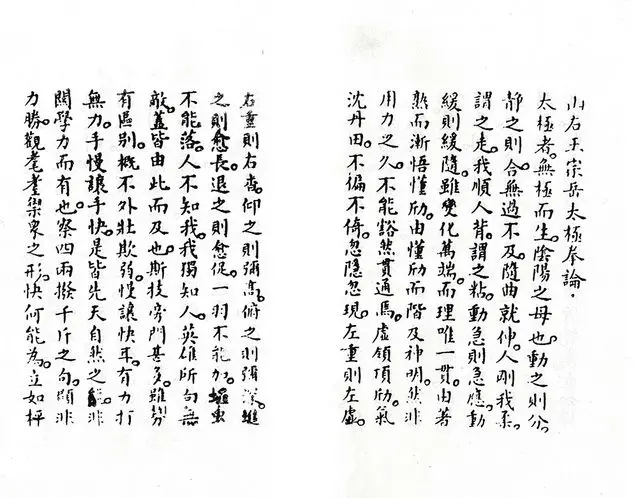 山右王宗岳太極拳論。
太極者。無極而生。陰陽之母也。動之則分。
靜之則合。無過不及。隨曲就伸。人剛我柔。
謂之走。我順人背。謂之粘。動急則急應。動
緩則緩隨。雖變化萬端。而理唯一貫。由著
熟而漸悟懂劤。由懂劤而階及神明。然非
用力之久。不能豁然貫通焉。虛領頂劤。氣
沈丹田。不偏不倚。忽隱忽現。左重則左虛。
右重則右杳。仰之則彌高。俯之則彌深。進
之則愈長。退之則愈促。一羽不能加。蠅虫
不能落。人不知我。我獨知人。英雄所向無
敵。蓋皆由此而及也。斯技旁門甚多。雖勢
有區别。概不外壯欺弱。慢讓快耳。有力打
無力。手慢讓手快。是皆先天自然之能。非
関學力而有也。察四兩撥千斤之句。顕非
力勝。觀耄耋禦眾之形。快何能為。立如枰